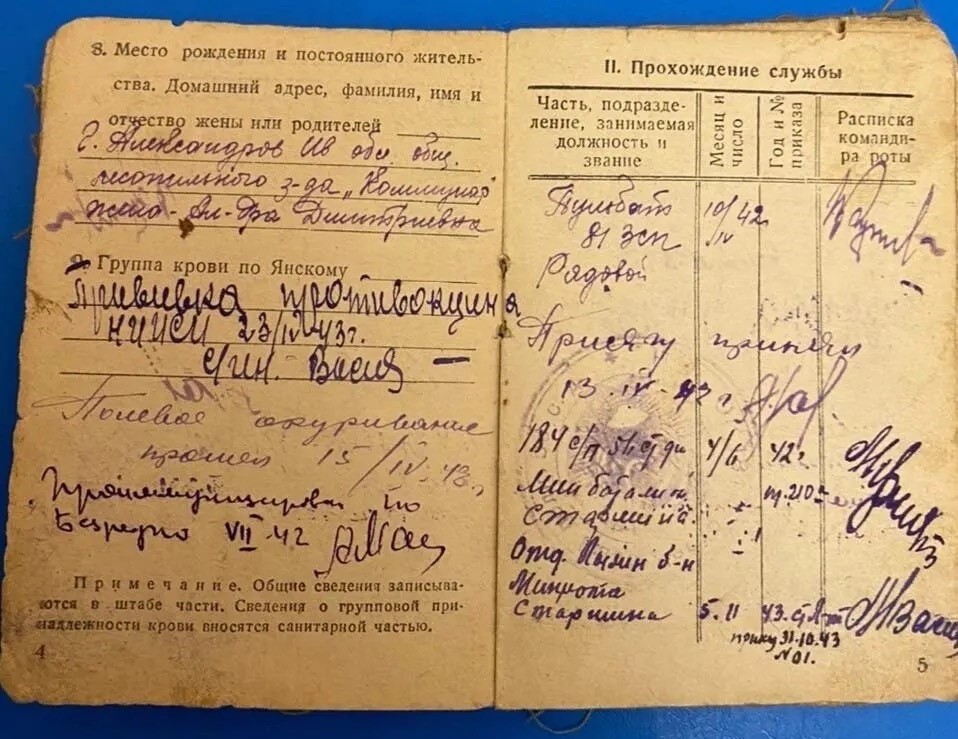 8. Место рождения и постоянного житель-
ства. Домашний адрес, фамилия, имя и
отчество жены или родителей
г. Александров Ив обл. общ.
лесопильного з-да „Коммунар"
жена - Ал-дра Дмитриевна
9. Группа крови по Янскому
Прививка
НИИСИ 23/IV 43г.
Полевое окуривание
прошел 15/IV-43г.
по
Безредко VII-42
Примечание. Общие сведения записыва-
ются в штабе части. Сведения о групповой при-
надлежности крови вносятся санитарной частью.
4
II. Прохождение службы
Часть, подразде-
ление, занимаемая
должность и
звание
Месяц и
число
Год и №
приказа
Расписка
команди-
ра роты
Пульбат 10/IV 42
81 ЗСП
Рядовой
Присягу принял
13. IV - 43 г
184 с/п 56 с/ди 4/6 42г
Мин батальон
Старшина
Отд. б-н
Минрота
Старшина 5. II 43.
прик. 31.10.43
№ 01.
5